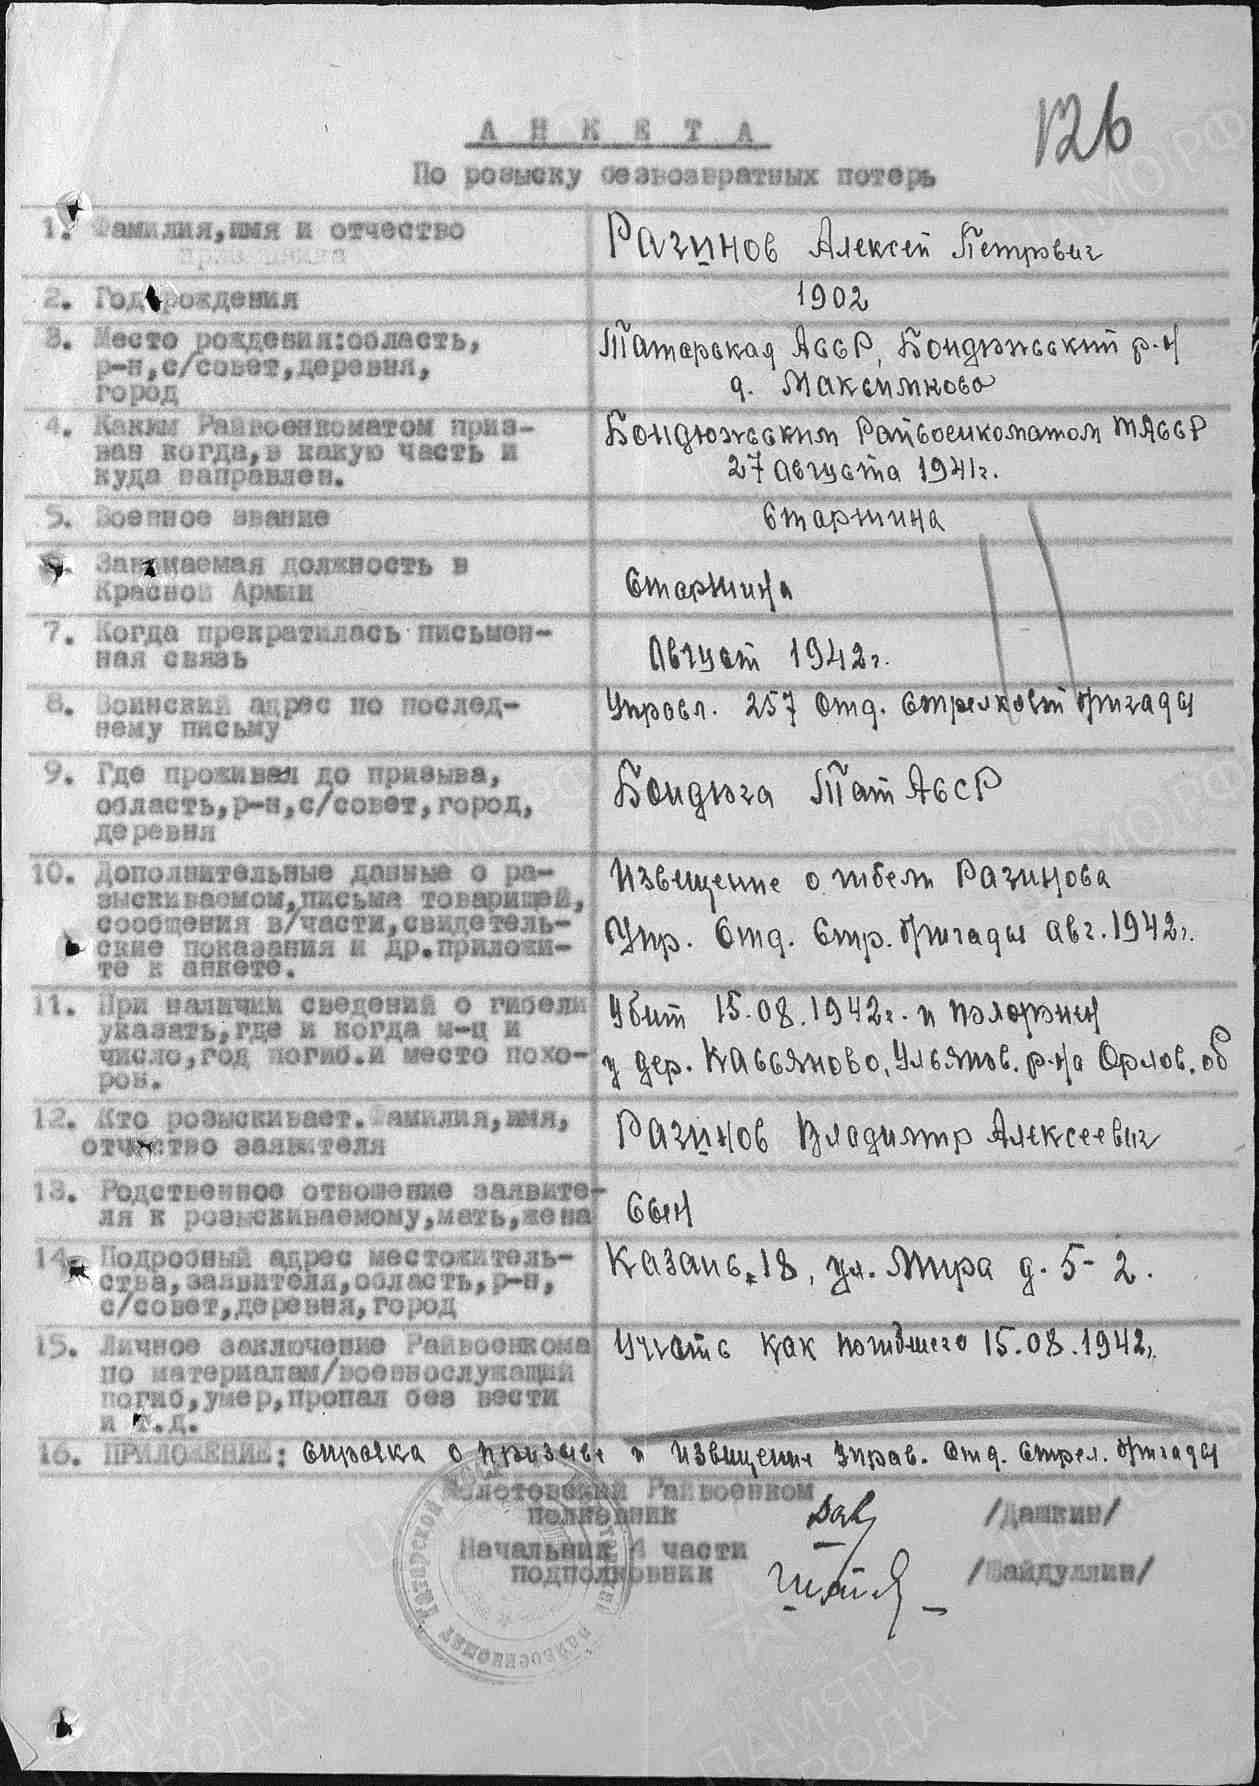 126
А Н К Е Т А
По розыску безвозвратных потерь
1. Фамилия,имя и отчество
Разинов Алексей Петрович
2. Год рождения
1902
3. Место рождения:область,
р-н,с/совет,деревня,
город
Татарская АССР, Бондюжский р-н
д. Максимково
4. Каким Райвоенкоматом приз-
ван когда,в какую часть и
куда направлен.
Бондюжским Райвоенкоматом ТАССР
27 Августа 1941г.
5. Военное звание
Старшина
6. Занимаемая должность в
Красной Армии
Старшина
7. Когда прекратилась письмен-
ная связь
Август 1942г.
8. Воинский адрес по послед-
нему письму
Управл. 257 Отд. Стрелковой бригады
9. Где проживал до призыва,
область,р-н,с/совет,город,
деревня
Бондюга Тат АССР
10. Дополнительные данные о ра-
зыскиваемом,письма товарищей,
сообщения в/части,свидетель-
ские показания и др.приложи-
те к анкете.
Извещение о гибели Разинова
Упр. Отд. Стр. бригады авг. 1942г.
11. При наличии сведений о гибели
указать,где и когда м-ц и
число,год погиб.и место похо-
рон.
Убит 15.08.1942г. и похоронен
у дер. Кассьяново, Ульянов. р-на Орлов. об
12. Кто розыскивает.Фамилия,имя,
отчество заявителя
Разинов Владимир Алексеевич
13. Родственное отношение заявите-
ля к розыскиваемому,мать,жена
Сын
14. Подробный адрес местожитель-
ства,заявителя,область,р-н,
с/совет,деревня,город
Казань-18, ул. Мира д. 5-2.
15. Личное заключение Райвоенкома
по материалам/военнослужащий
погиб,умер,пропал без вести
и т.д.
Учесть как погибшего 15.08.1942г.
16. ПРИЛОЖЕНИЕ: Справка о призыве и извещение Управ. Отд. Стрел. бригады
Молотовский Райвоенком
полковник /Дашкин/
Начальник 4 части
подполковник /Шайдуллин/